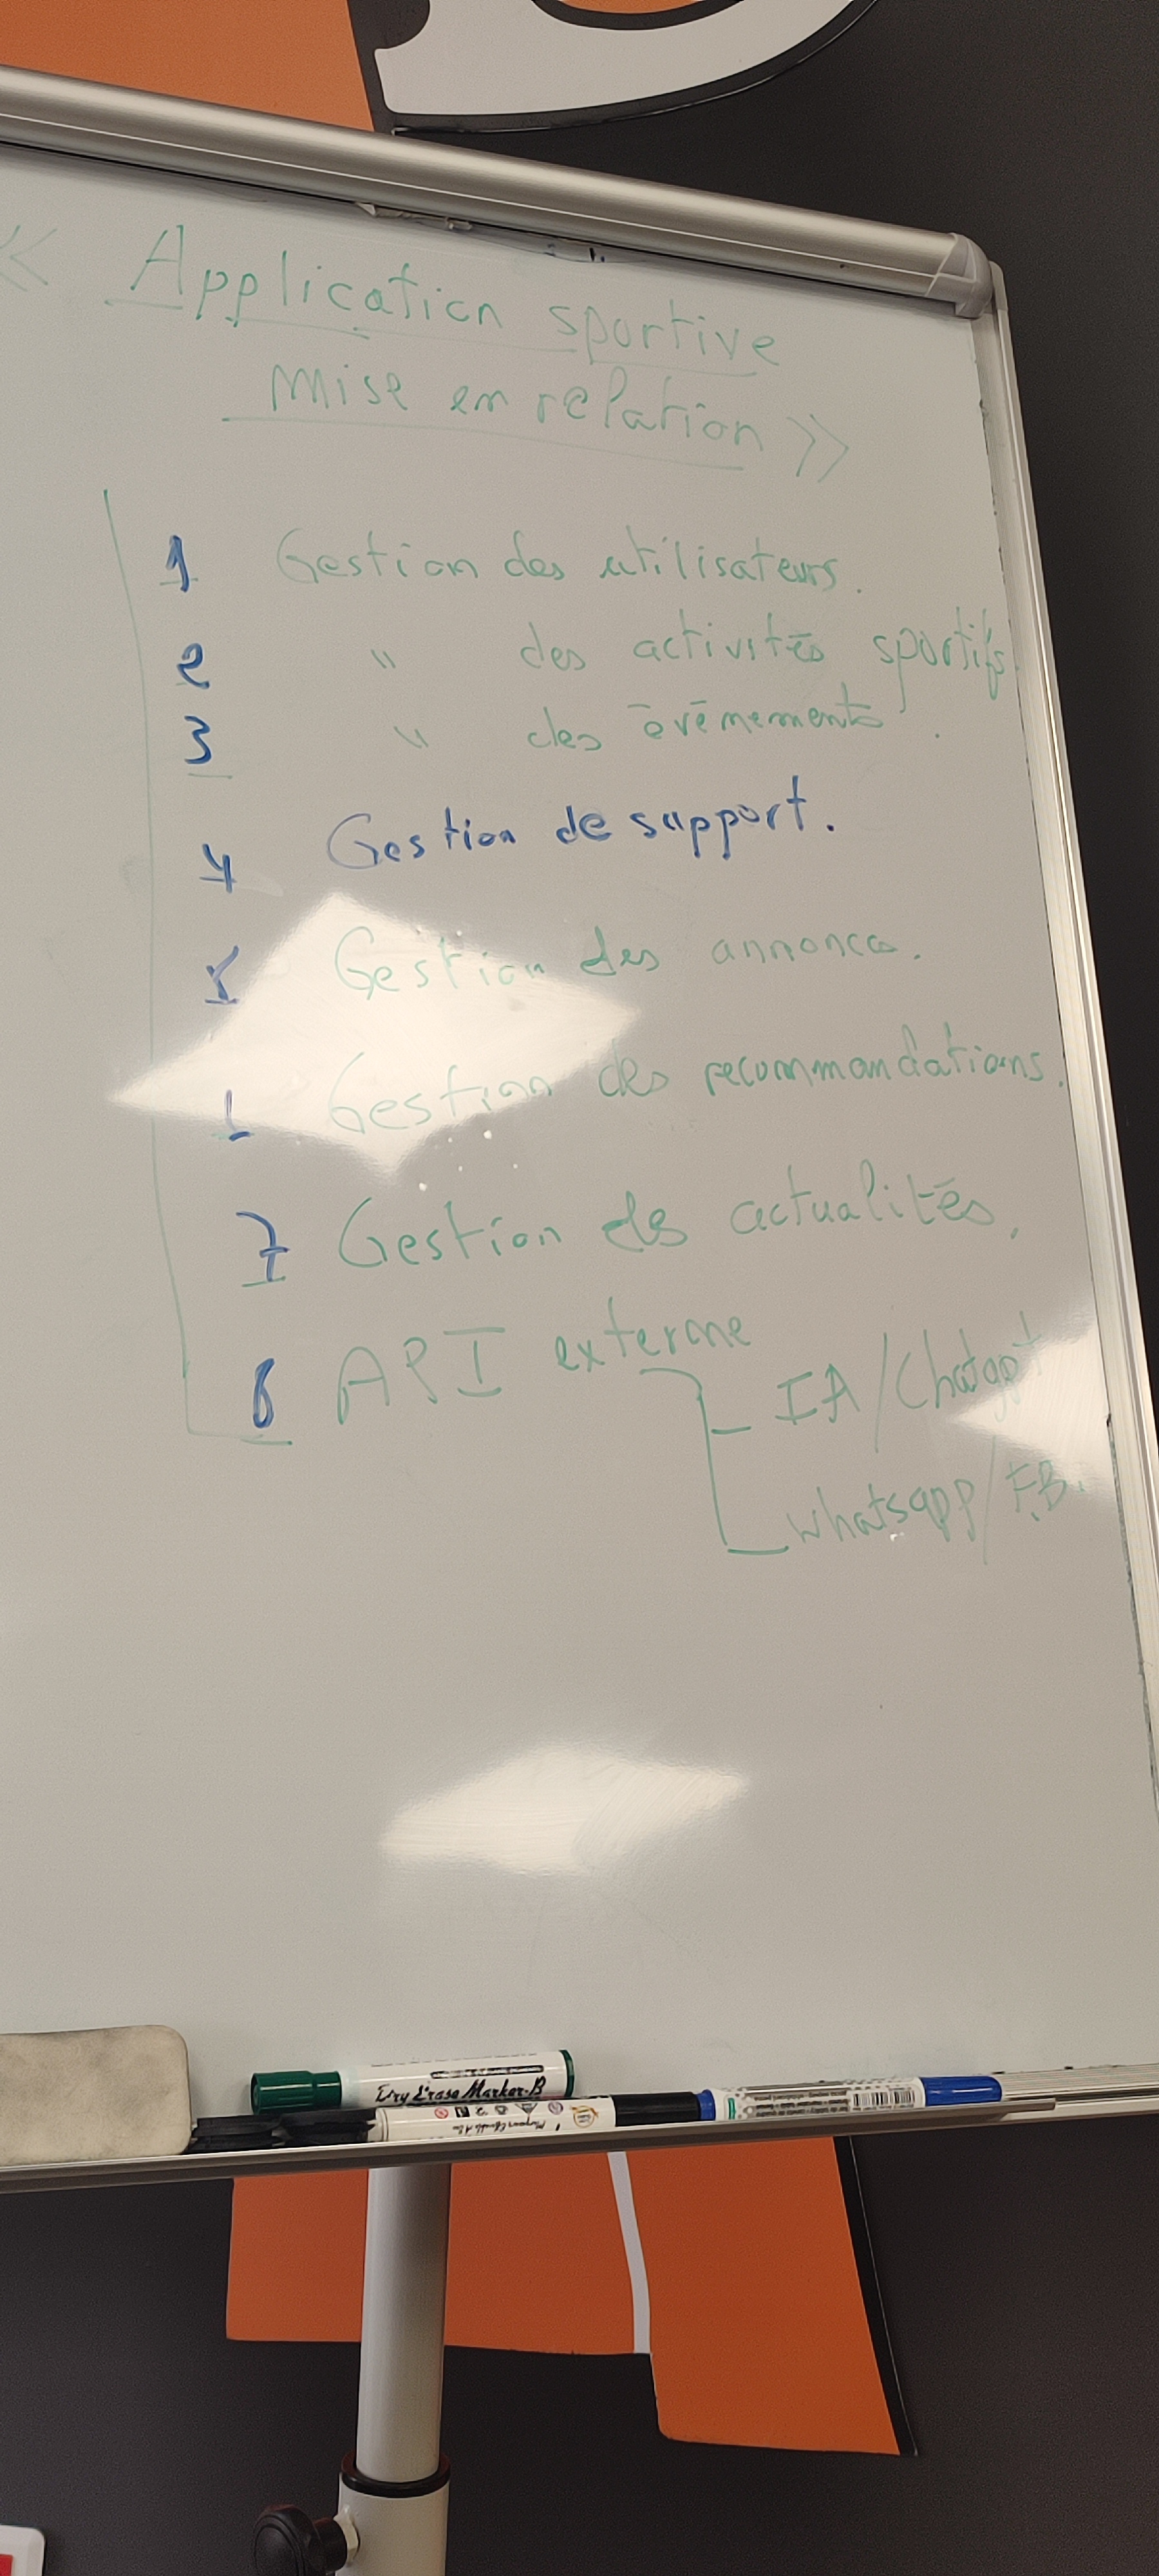 « Application sportive
mise en relation »
1 Gestion des utilisateurs.
2 " des activités sportifs.
3 " des évènements.
4 Gestion de support.
5 Gestion des annonces.
Gestion des recommandations.
7 Gestion des actualités.
8 API externe
IA/Chatgpt
whatsapp/FB.
Dry Erase Marker-B